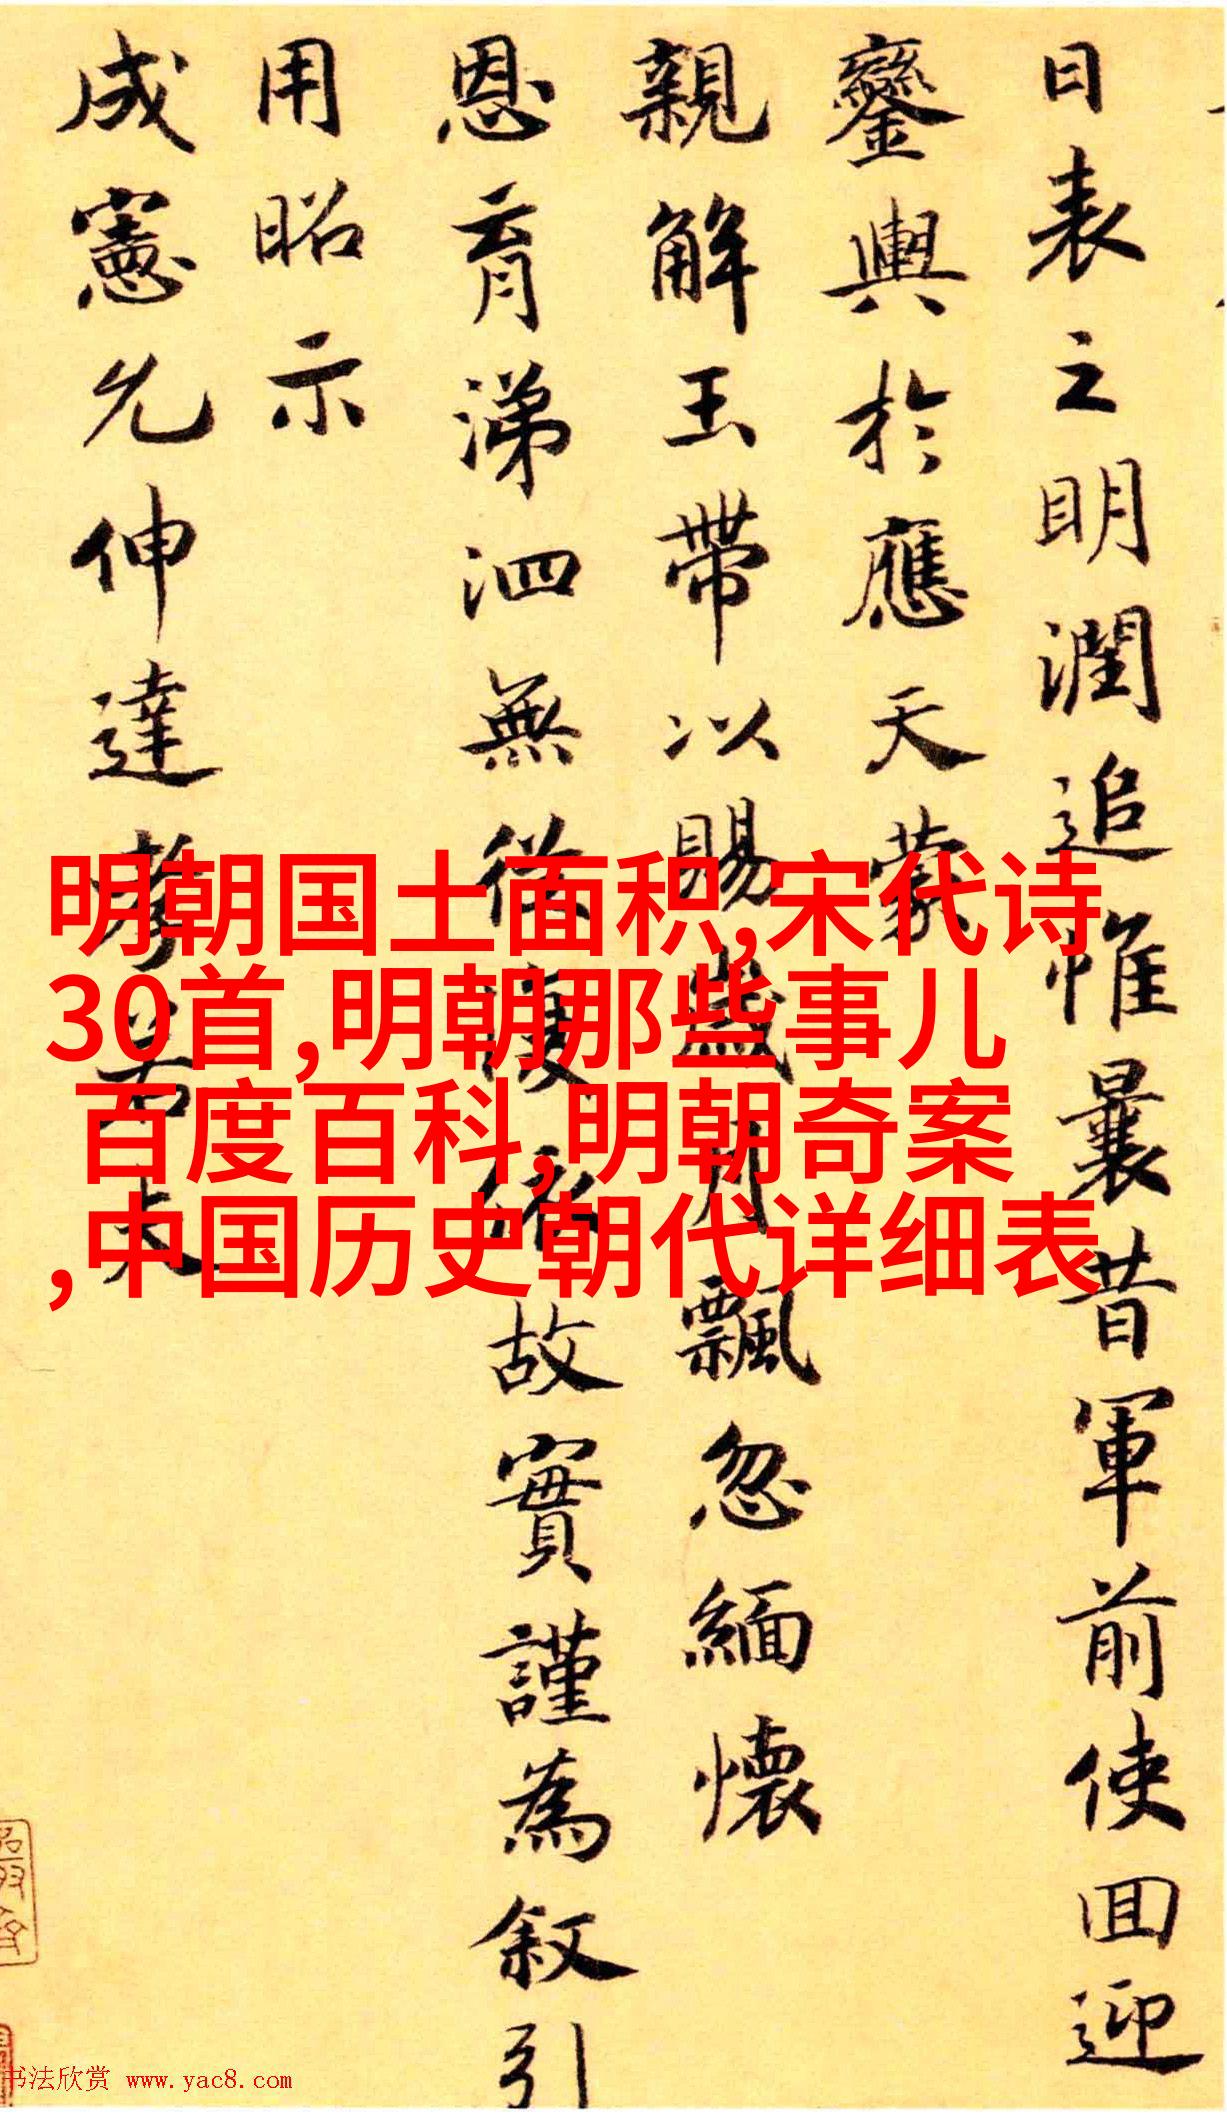 日表之明潤追惟曩昔軍前使回迎
鑾輿於應天蒙
親解玉帶以賜歲月飄忽緬懷
恩育涕泗無從復緣故實謹為叙引
用昭示
成憲允伸達孝若夫
明朝国土面积,宋代诗
30首,明朝那些事儿
百度百科,明朝奇案
,中国历史朝代详细表
书法欣赏 www.yac8.com